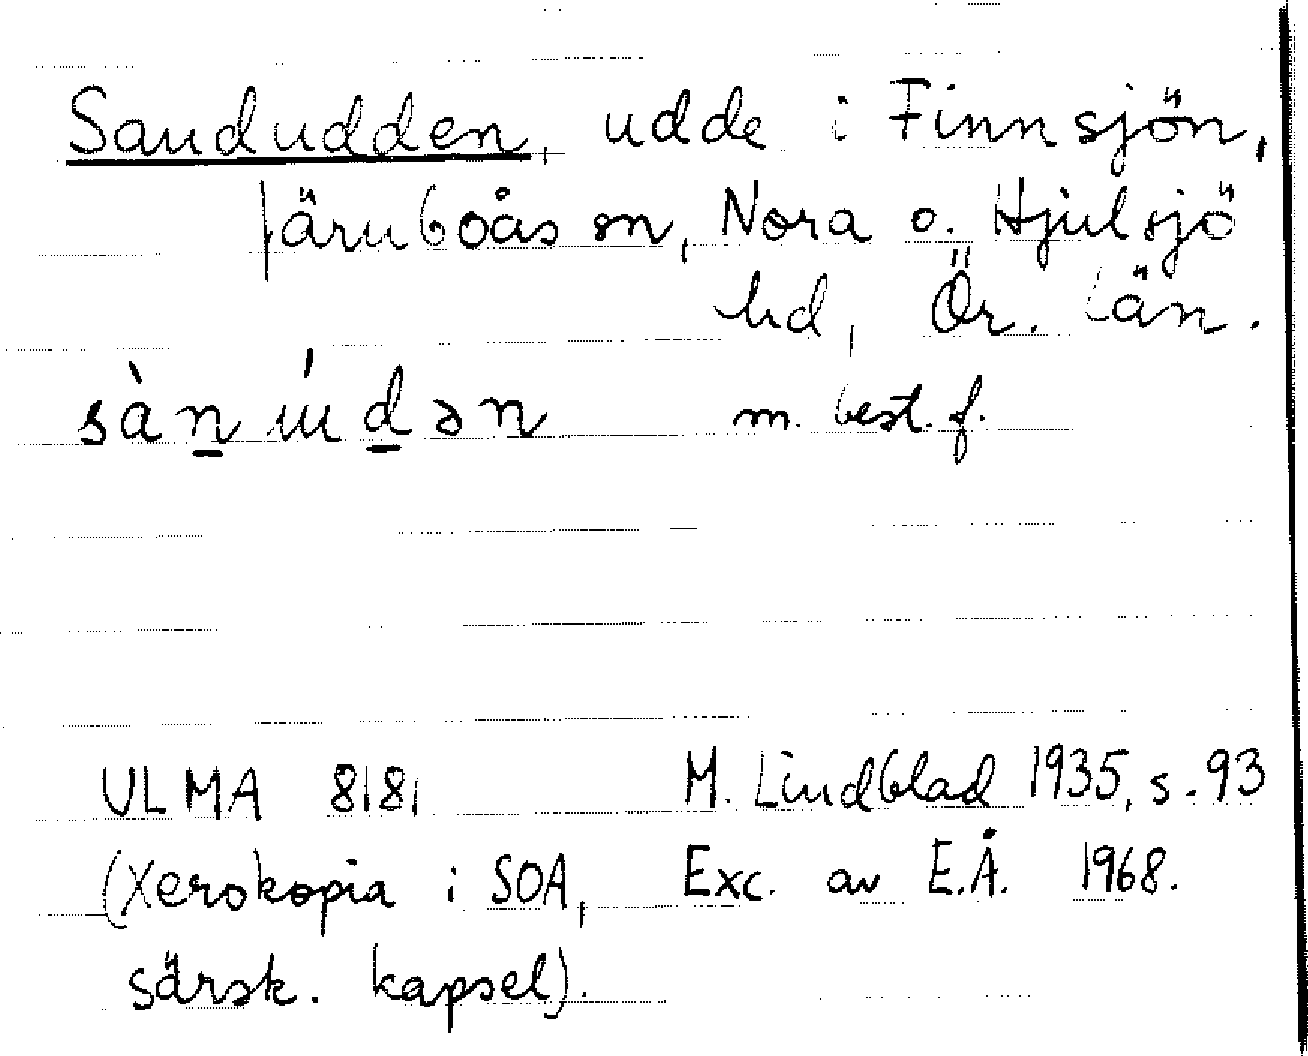 Sandudden, udde i Finnsjön,
Järnboås sn, Nora o. Hjulsjö
hd, Ör. län.
sàn údən m. best. f.
ULMA 8181 M. Lindblad 1935, s. 93
(Xerokopia i SOA, Exc. av E.Å. 1968.
särsk. kapsel).